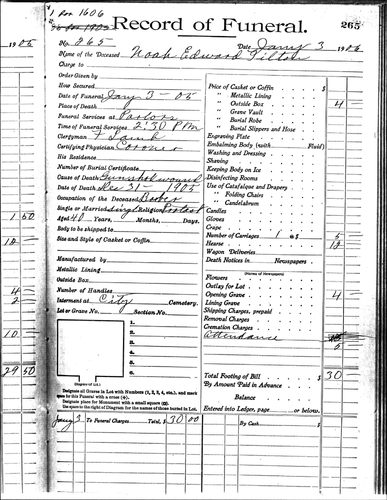 Record of Funeral.
265
No. 265
Date Jany 3 1906
Name of the Deceased Noah Edward
Charge to
Order Given by
How Secured
Date of Funeral Jany 3 - 05
Place of Death
Funeral Services at Parlors
Time of Funeral Services 2:30 PM
Clergyman
Certifying Physician Coroner
His Residence
Number of Burial Certificate
Cause of Death Gunshot wound
Date of Death Dec 31 - 1905
Occupation of the Deceased
Single or Married Single Religion Protest
Aged 40 Years, Months, Days.
Body to be shipped to
Size and Style of Casket or Coffin
Manufactured by
Metallic Lining
Outside Box
Number of Handles
Interment at City Cemetery.
Lot or Grave No. Section No.
1.
2.
3.
4.
5.
6.
(Diagram of Lot.)
Designate all Graves in Lot with Numbers (1, 2, 3, 4, etc.), and mark
space for this Funeral with a cross (+).
Designate place for Monument with a small square (□).
Use space to the right of Diagram for the names of those buried in Lot.
Jany 3 To Funeral Charges Total, $ 30 00
Price of Casket or Coffin $
" Metallic Lining
" Outside Box 4
" Grave Vault
" Burial Robe
" Burial Slippers and Hose
Engraving Plate
Embalming Body (with Fluid)
Washing and Dressing
Shaving
Keeping Body on Ice
Disinfecting Rooms
Use of Catafalque and Drapery
" Folding Chairs
" Candelabrum
Candles
Gloves
Crape
Number of Carriages 1 @ $ 5
Hearse 12
Wagon Deliveries
Death Notices in Newspapers
(Names of Newspapers)
Flowers
Outlay for Lot
Opening Grave 4
Lining Grave
Shipping Charges, prepaid
Removal Charges
Cremation Charges
Attendance 5
Total Footing of Bill $ 30
By Amount Paid in Advance
Balance
Entered into Ledger, page or below.
By Cash $